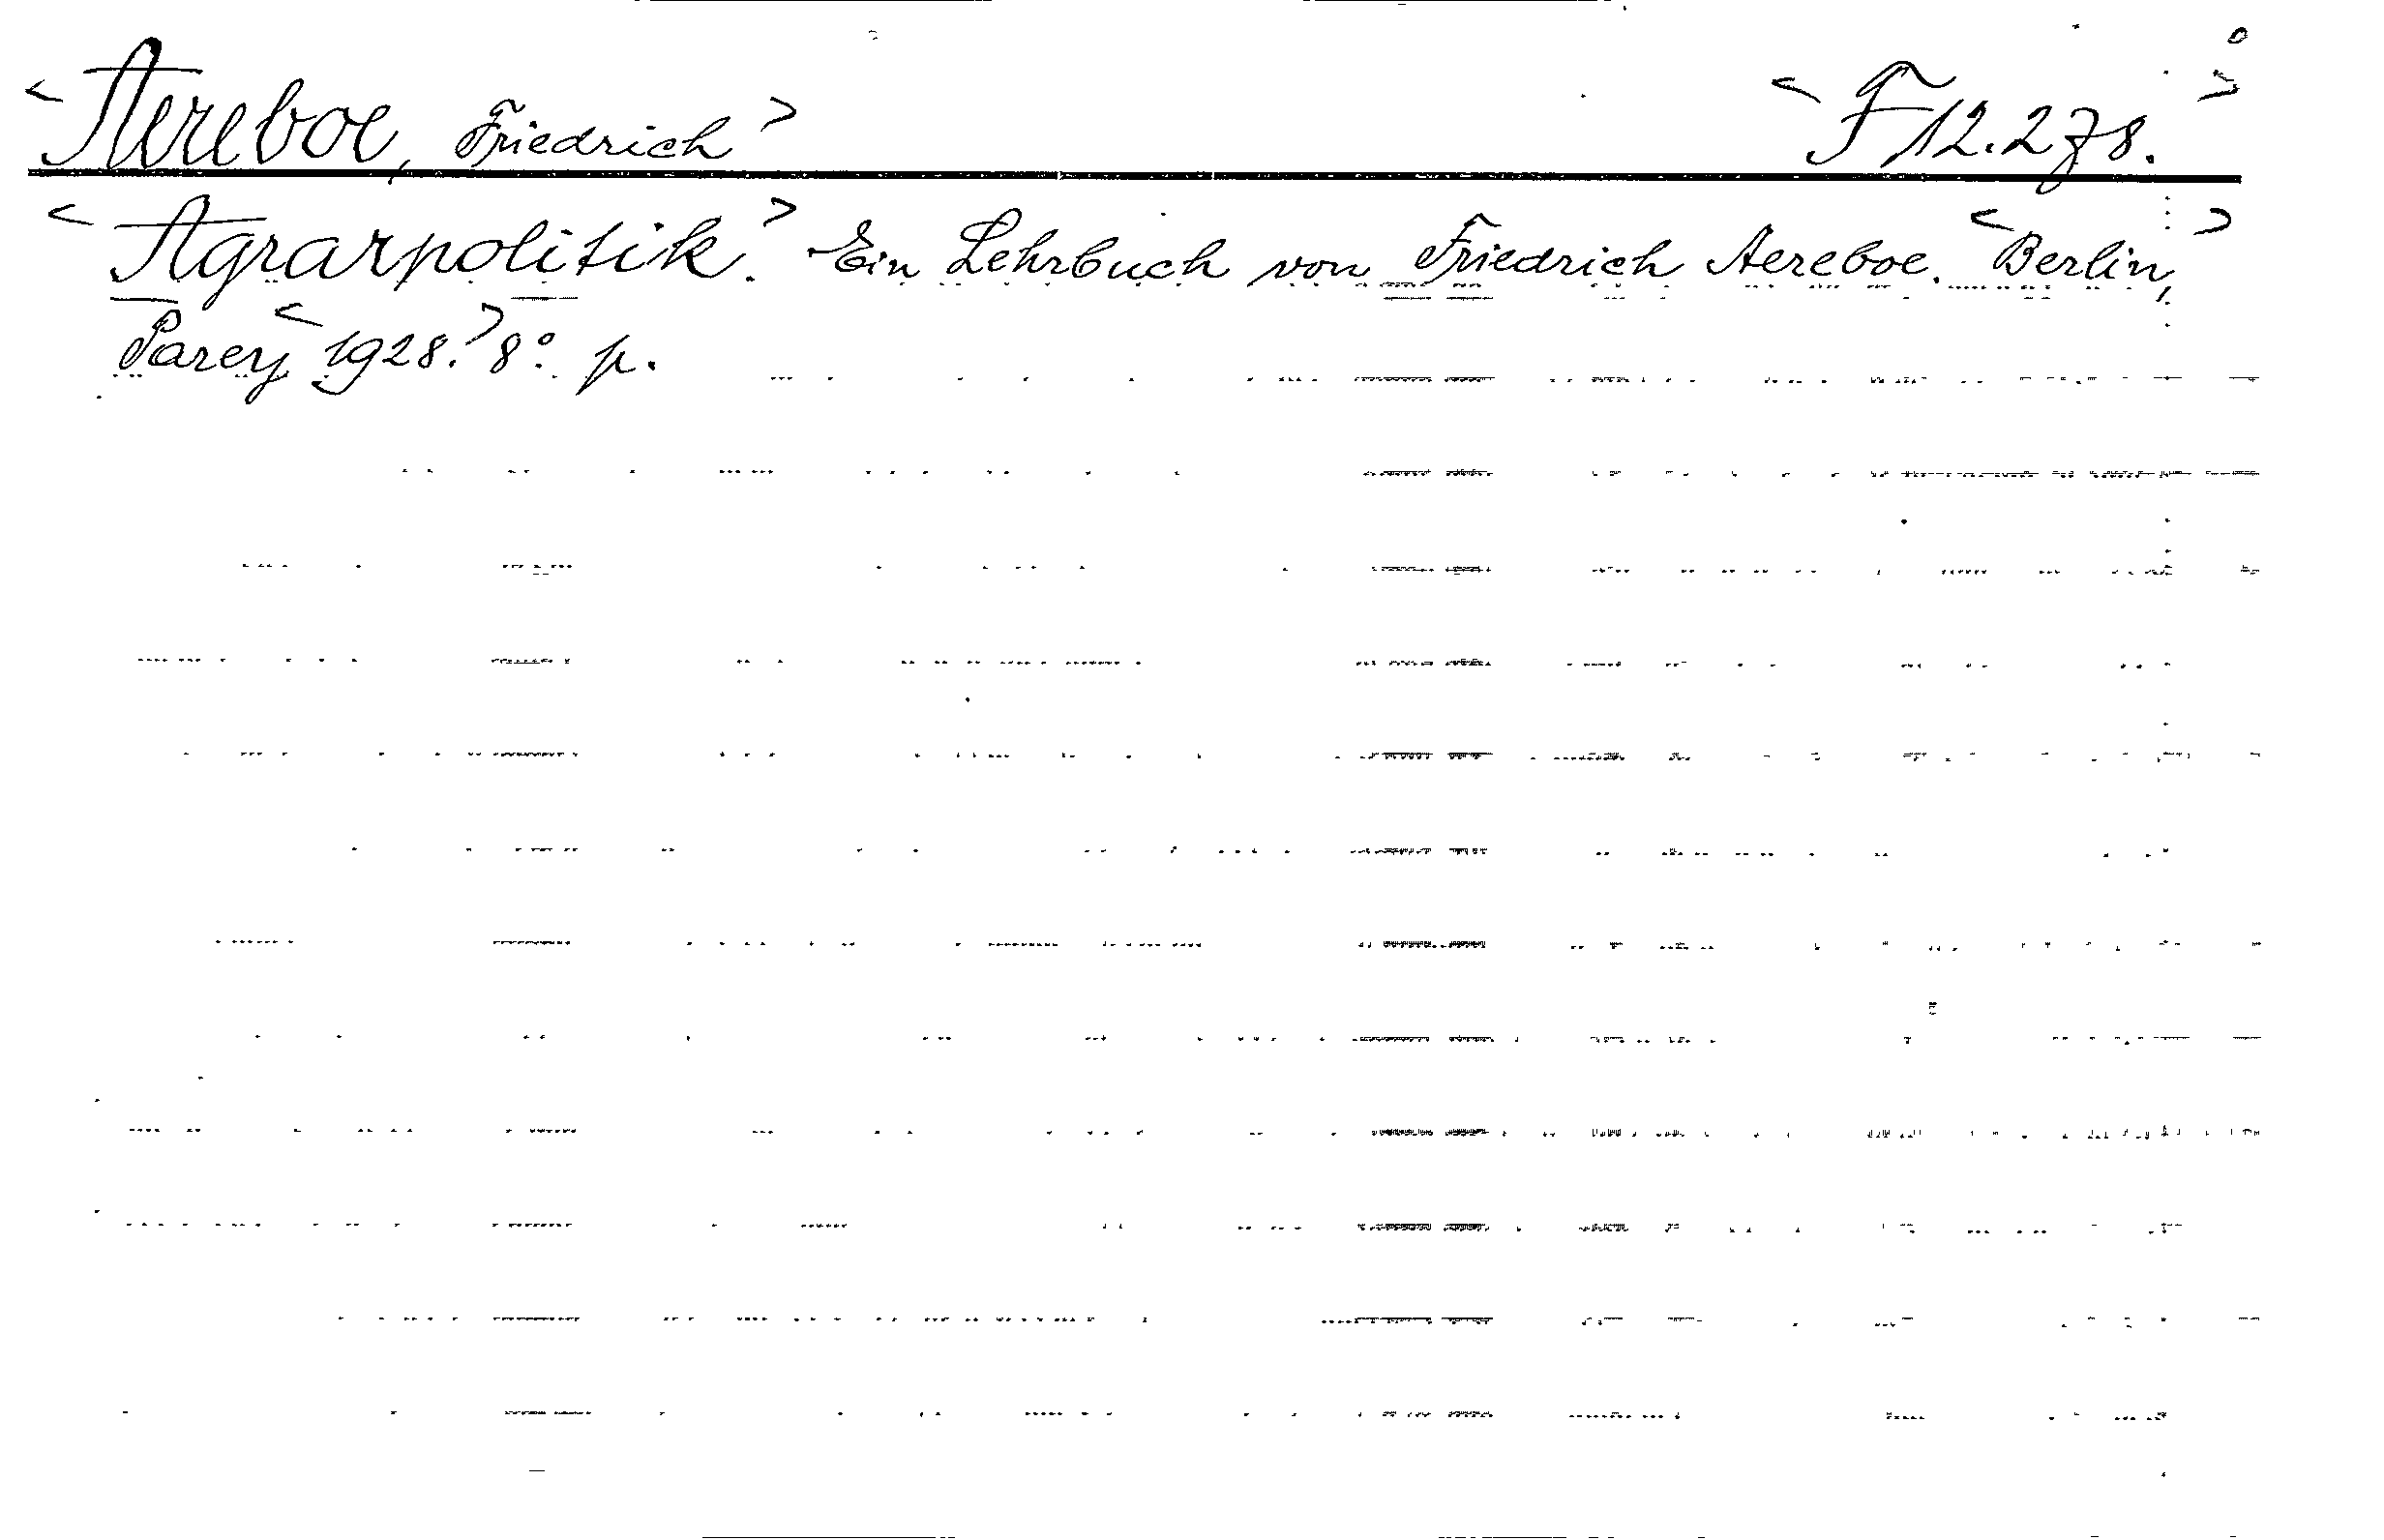 <Aereboe, Friedrich> <F 12.278.>
<Agrarpolitik.> Ein Lehrbuch von Friedrich Aereboe. <Berlin,>
Parey <1928.> 8°. p.